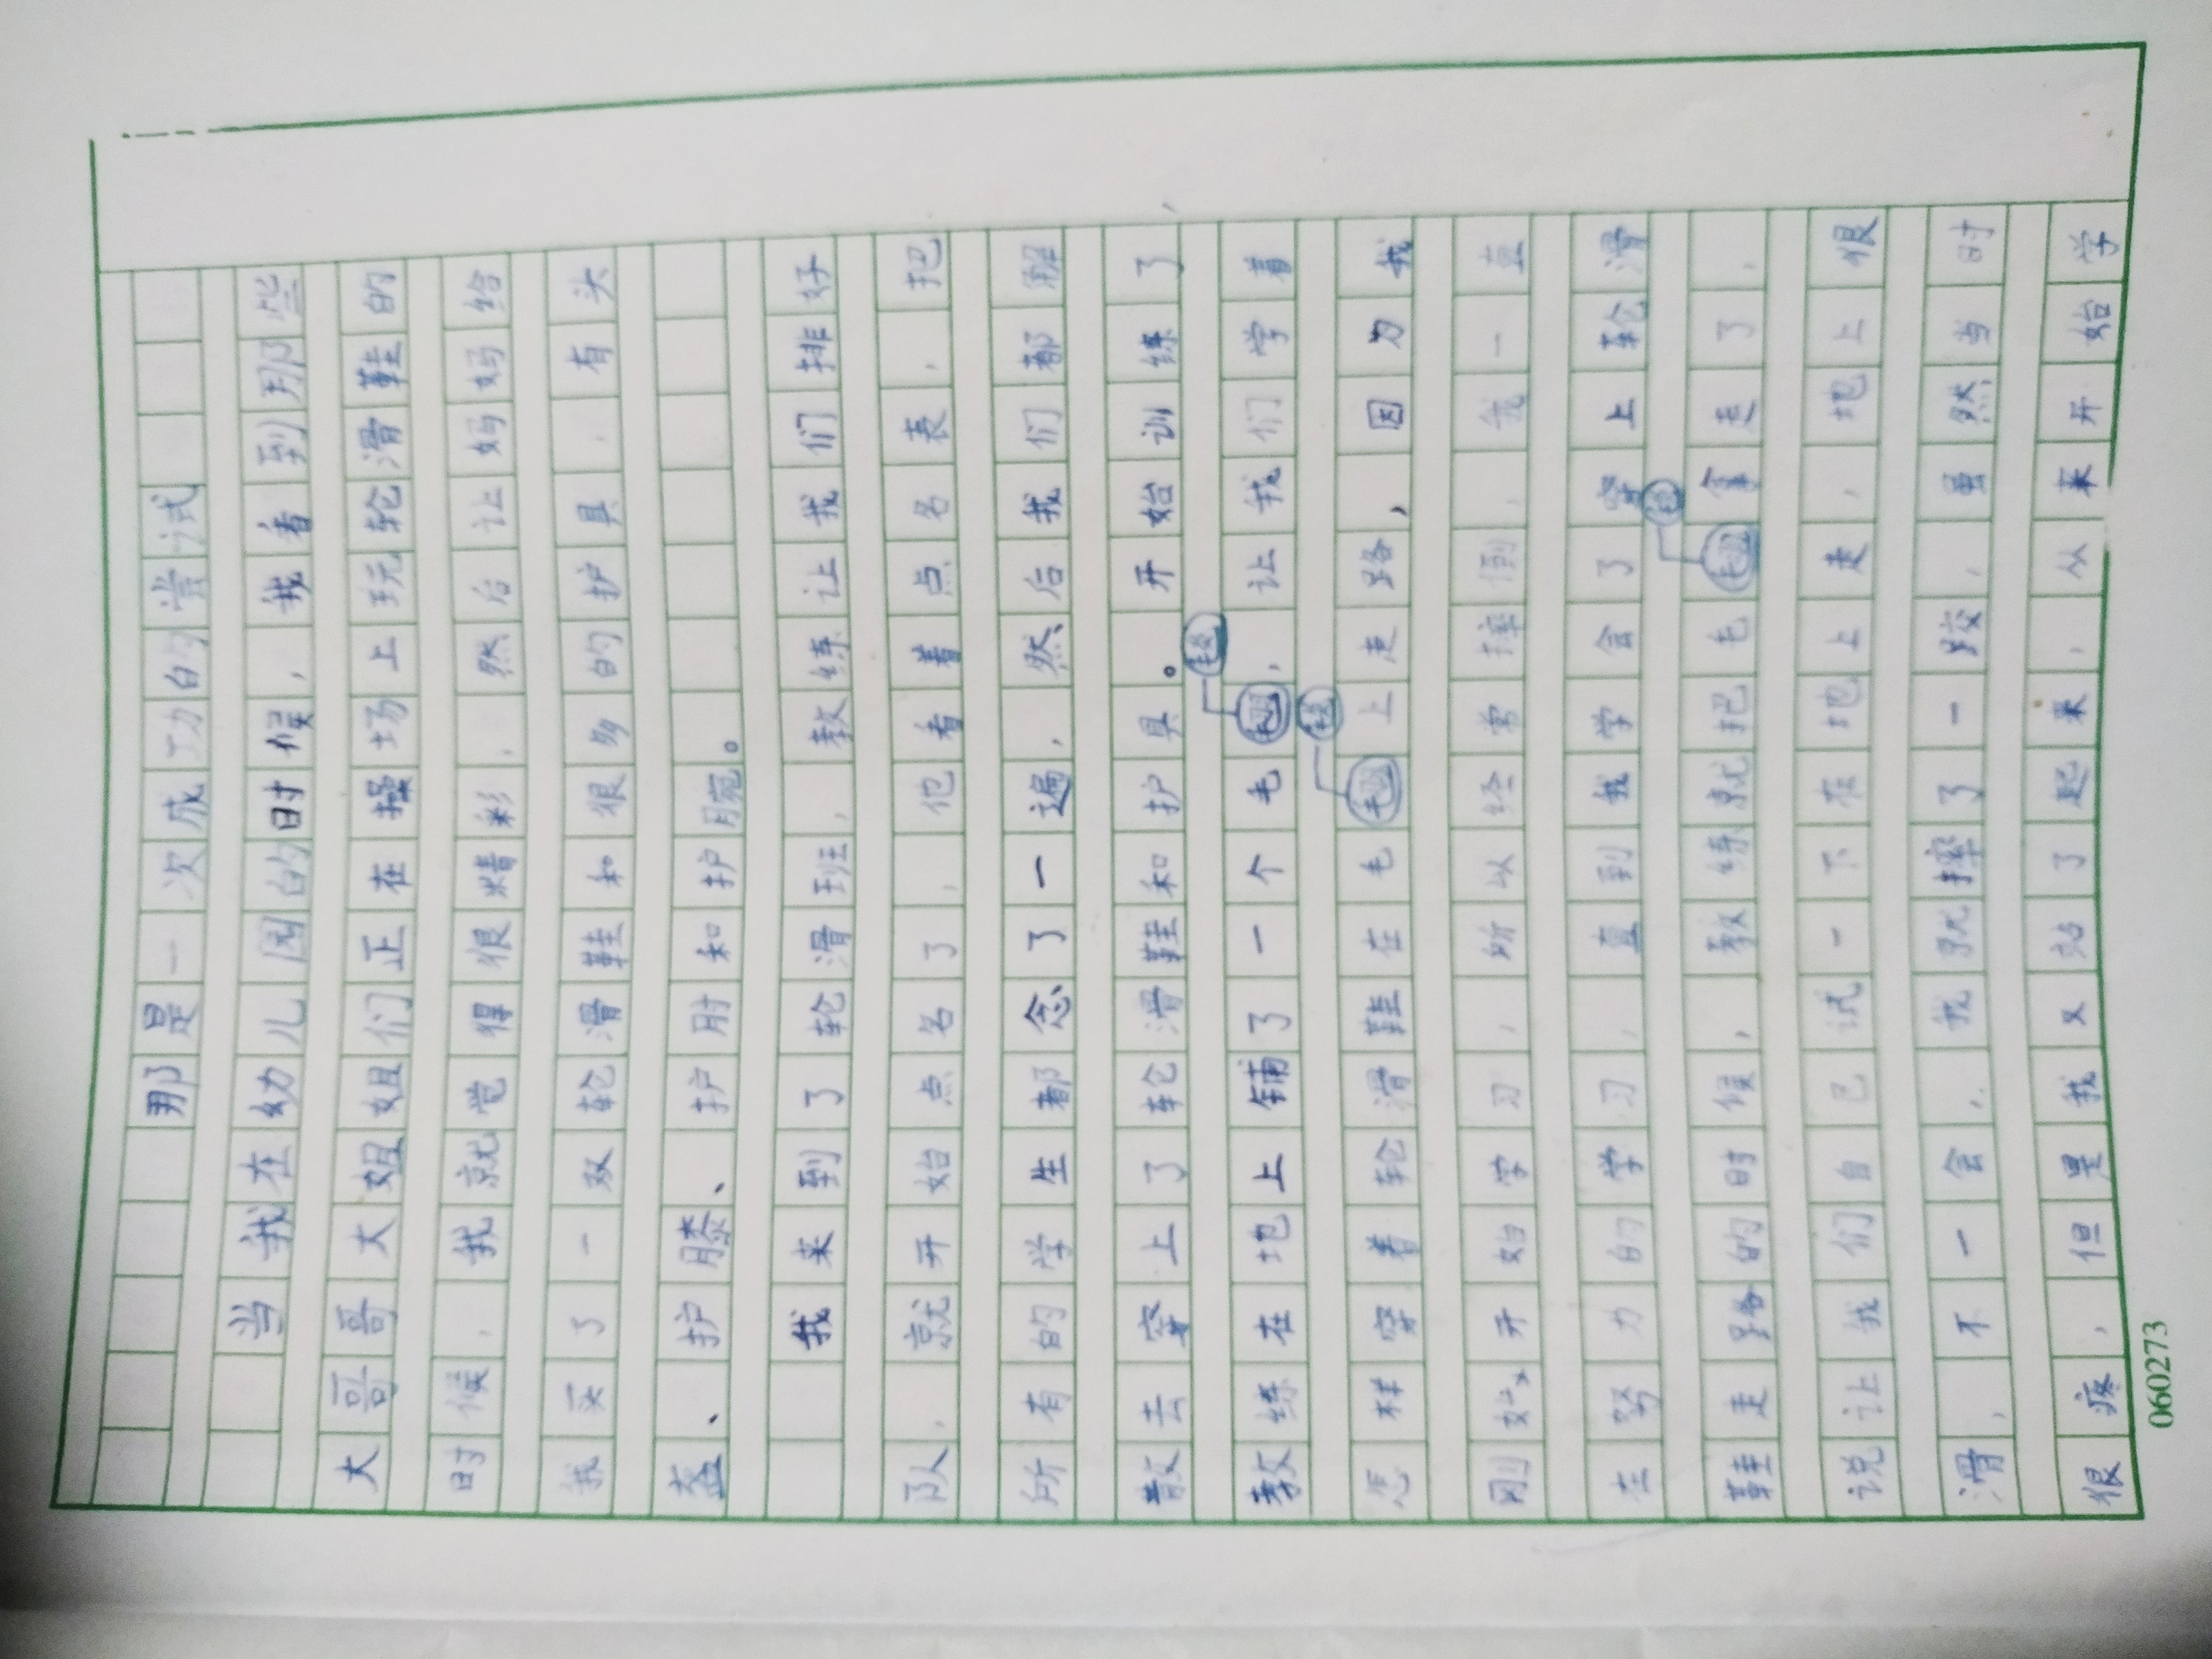 那是一次成功的尝试
当我在幼儿园的时候，我看到那些
大哥哥大姐姐们正在操场上玩轮滑鞋的
时候，我就觉得很精彩，然后让妈妈给
我买了一双轮滑鞋和很多的护具，有头
盔、护膝、护肘和护腕。
我来到了轮滑班，教练让我们排好
队，就开始点名了，他看着点名表，把
所有的学生都念了一遍，然后我们都解
散去穿上了轮滑鞋和护具。开始训练了
毯
教练在地上铺了一个毛，让我们学着
毯
怎样穿着轮滑鞋在毛上走路，因为我
刚刚开始学习，所以经常摔倒，我一直
在努力的学习，直到我学会了穿上轮滑
毯
鞋走路的时候，教练就把毛拿走了，
说让我们自己试一下在地上走，地上很
滑，不一会，我就摔了一跤，虽然当时
很疼，但是我又站了起来，从来开始学
060273